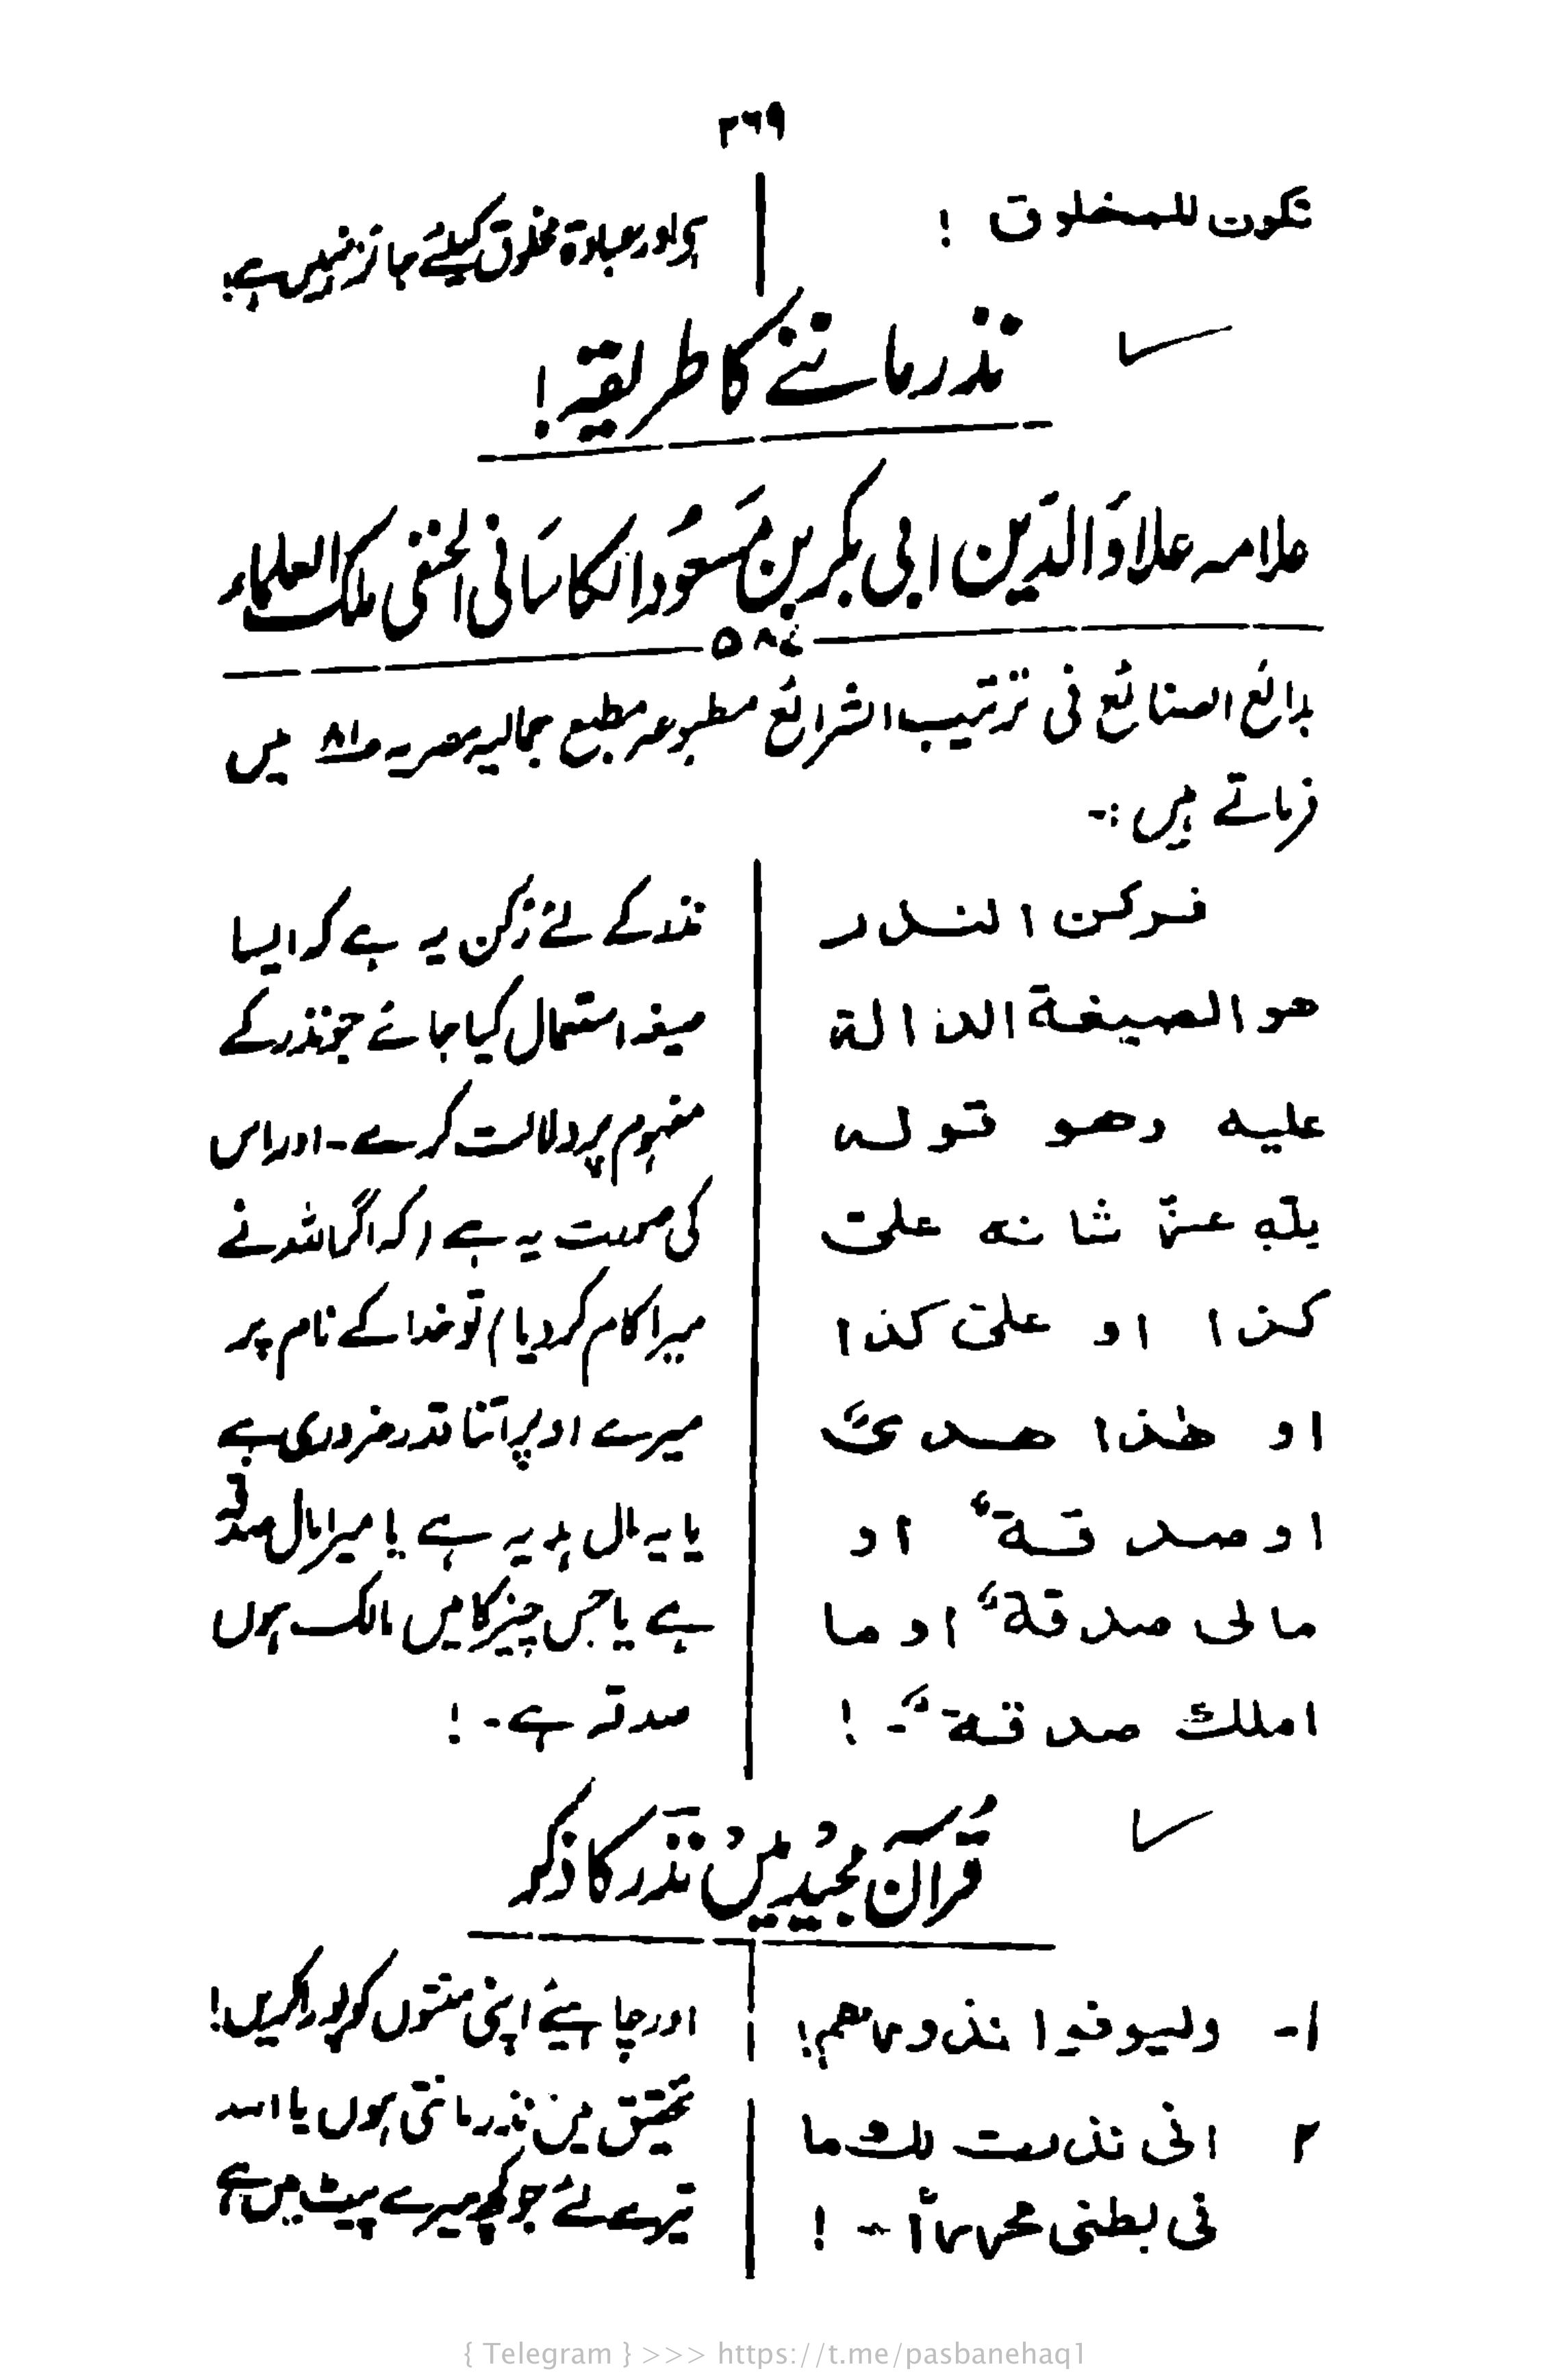 ۳۶۹
تکون للمخلوق !
ہے اور عبادۃ مخلوق کیلئے جائز نہیں ہے۔
نذر ماننے کا طریقہ !
علامہ علاؤ الدّین ابی بکر بن مسعُود الکاسَانی الحنفی ملک العلماء
بدائع الصنائع فی ترتیب الشرائع مطبوعہ مطبع جمالیہ مصریہ میں
فرماتے ہیں :-
فرکن النذر
ھو الصیغۃ الدالۃ
علیہ وھو قولہ
للّٰہ عزّ شانہ علیّ
کذا او علیّ کذا
او ھٰذا ھدیٌ
او صدقۃٌ او
مالی صدقۃٌ او ما
املک صدقۃٌ - !
نذر کے لئے رُکن یہ ہے کہ ایسا
صیغہ استعمال کیا جائے جو نذر کے
مفہوم پر دلالت کرے۔ اور اس
کی صورت یہ ہے (کہ اگر اللہ نے
میرا کام کر دیا) تو خدا کے نام پر
میرے اوپر اتنا قدر ضروری ہے
یا یہ مال ہدیہ ہے یا میرا مال صدقہ
ہے یا جس چیز کا میں مالک ہوں
صدقہ ہے - !
قُرآن مجیْد میںْ نذر کا ذکر
۱- ولیوفوا نذورھم !
اور چاہیئے اپنی منتوں کو پورا کریں !
۲ انی نذرت لک ما
فی بطنی محررًا - !
تحقیق میں نذر مانتی ہوں یا اللہ
تیرے لئے جو کچھ میرے پیٹ میں ہے
{ Telegram } >>> https://t.me/pasbanehaq1